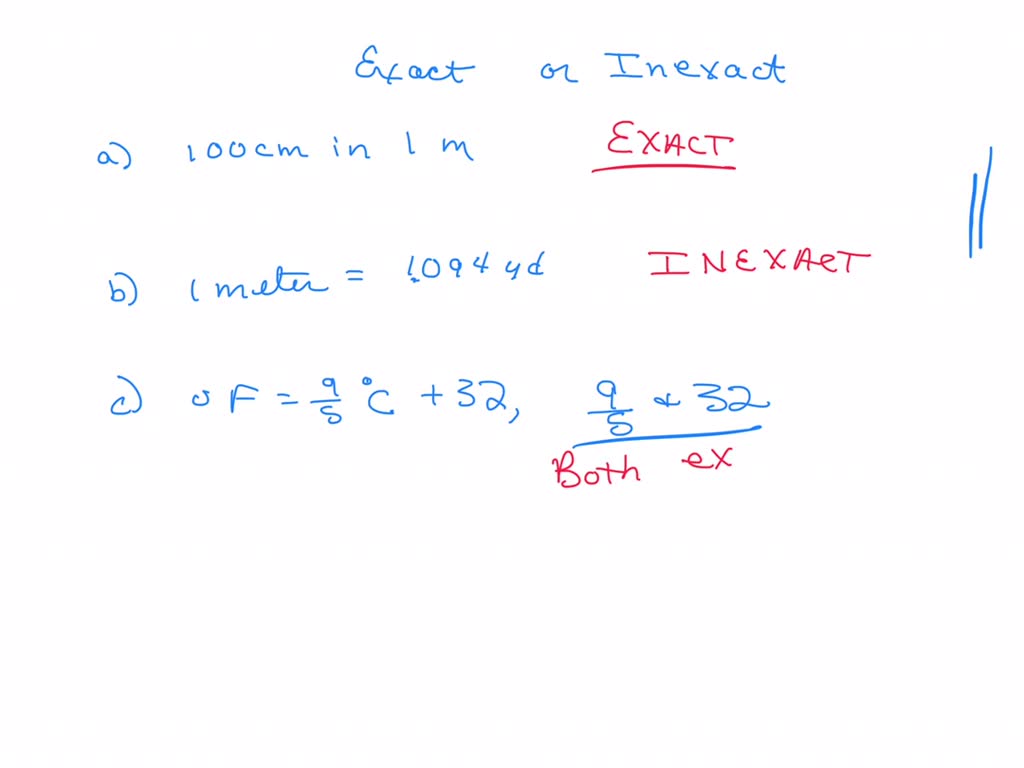 Exact or Inexact
a) 100cm in 1 m EXACT
b) 1 meter = 1.094 yd INEXACT
c) °F = 9/5 °C + 32, 9/5 & 32
Both ex